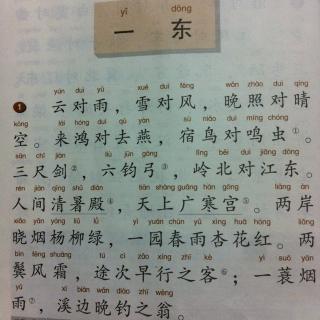 yī dōng
一 东
yún duì yǔ xuě duì fēng wǎn zhào duì qíng
❶ 云对雨，雪对风，晚照对晴
kōng lái hóng duì qù yàn sù niǎo duì míng chóng
空。来鸿对去燕，宿鸟对鸣虫①。
sān chǐ jiàn liù jūn gōng lǐng běi duì jiāng dōng
三尺剑②，六钧弓③，岭北对江东。
rén jiān qīng shǔ diàn tiān shàng guǎng hán gōng liǎng àn
人间清暑殿④，天上广寒宫⑤。两岸
xiǎo yān yáng liǔ lǜ yì yuán chūn yǔ xìng huā hóng liǎng
晓烟杨柳绿，一园春雨杏花红。两
bìn fēng shuāng tú cì zǎo xíng zhī kè yì suō yān
鬓风霜，途次早行之客⑥；一蓑烟
yǔ xī biān wǎn diào zhī wēng
雨⑦，溪边晚钓之翁。